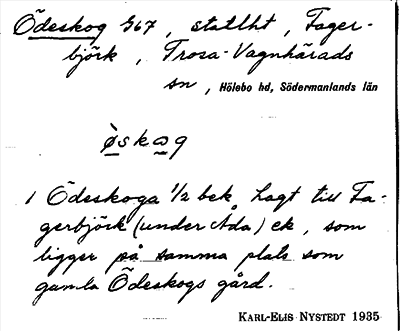 Ödeskog 567, statlht, Fager-
björk, Trosa-Vagnhärads
sn, Hölebo hd, Södermanlands län
ø̀skɷg
1 Ödeskoga ½ bek, hagt till Fa-
gerbjörk (under Åda) ek, som
ligger på samma plats som
gamla Ödeskogs gård.
KARL-ELIS NYSTEDT 1935